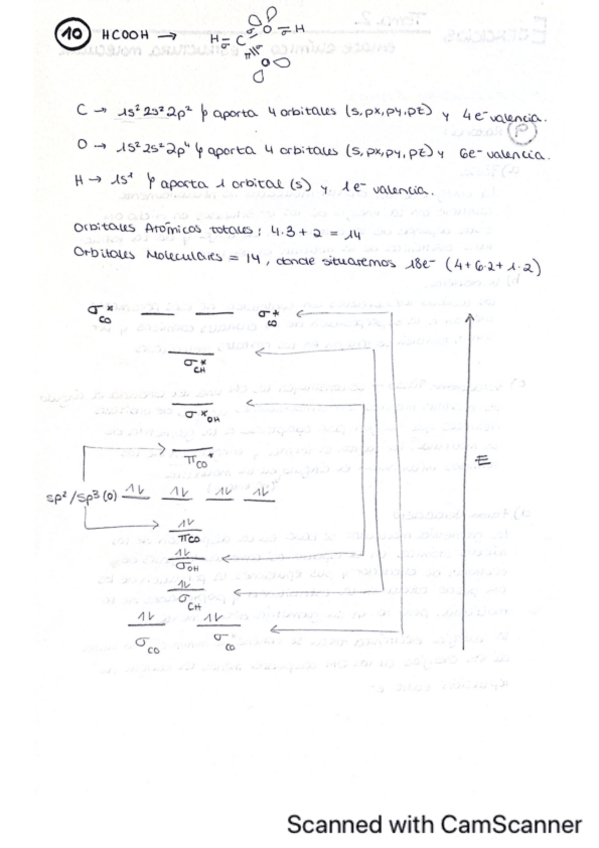 10 HCOOH →
H - C O - H
σ σ σ
π σ
O
C → 1s² 2s² 2p² aporta 4 orbitales (s, px, py, pz) y 4e⁻ valencia.
O → 1s² 2s² 2p⁴ aporta 4 orbitales (s, px, py, pz) y 6e⁻ valencia.
H → 1s¹ aporta 1 orbital (s) y 1e⁻ valencia.
Orbitales Atómicos totales: 4·3 + 2 = 14
Orbitales Moleculares = 14, donde situaremos 18e⁻ (4+6·2+1·2)
σ*CO σ*CO
σCH*
σ*OH
πCO*
sp²/sp³(O) 1↓ 1↓ 1↓ 1↓
E
1↓
πCO
1↓
σOH
1↓
σCH
1↓ 1↓
σCO σCO
Scanned with CamScanner